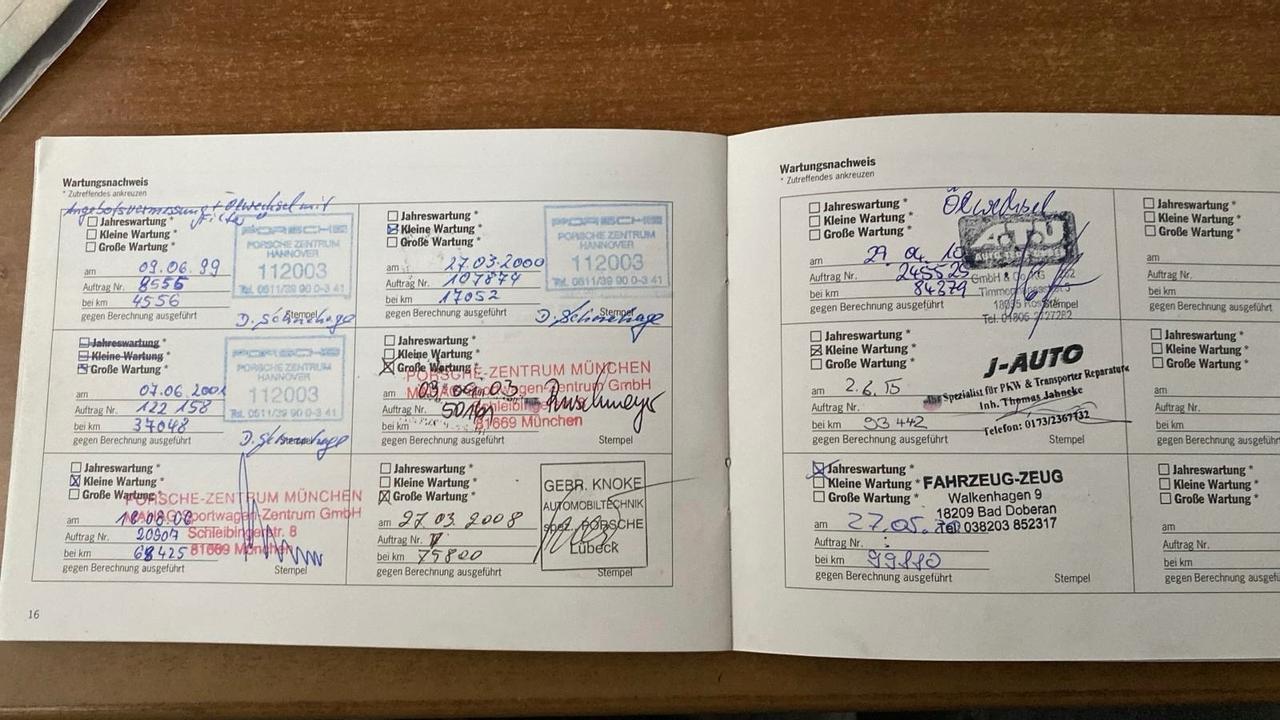 Wartungsnachweis
* Zutreffendes ankreuzen
Angebotsvermessung + Ölwechsel mit
Filter
Jahreswartung *
Kleine Wartung *
Große Wartung *
am 09.06.99
Auftrag Nr. 8556
bei km 4556
gegen Berechnung ausgeführt
PORSCHE
PORSCHE ZENTRUM
HANNOVER
112003
Tel. 0511/39 90 0-3 41
Stempel
Jahreswartung *
Kleine Wartung *
Große Wartung *
am 27.03.2000
Auftrag Nr. 107874
bei km 17052
gegen Berechnung ausgeführt
PORSCHE
PORSCHE ZENTRUM
HANNOVER
112003
Tel. 0511/39 90 0-3 41
Stempel
Jahreswartung *
Kleine Wartung *
Große Wartung *
am 07.06.2001
Auftrag Nr. 122 158
bei km 37048
gegen Berechnung ausgeführt
PORSCHE
PORSCHE ZENTRUM
HANNOVER
112003
Tel. 0511/39 90 0-3 41
Stempel
Jahreswartung *
Kleine Wartung *
Große Wartung *
am 03.04.03
Auftrag Nr.
bei km
gegen Berechnung ausgeführt
PORSCHE-ZENTRUM MÜNCHEN
Sportwagen-Zentrum GmbH
81669 München
Stempel
Jahreswartung *
Kleine Wartung *
Große Wartung *
am
Auftrag Nr. 20907
bei km 68425
gegen Berechnung ausgeführt
PORSCHE-ZENTRUM MÜNCHEN
MAHAG Sportwagen-Zentrum GmbH
Schleibingerstr. 8
81669 München
Stempel
Jahreswartung *
Kleine Wartung *
Große Wartung *
am 27.03.2008
Auftrag Nr.
bei km 75800
gegen Berechnung ausgeführt
GEBR. KNOKE
AUTOMOBILTECHNIK
spez. PORSCHE
Lübeck
Stempel
16
Wartungsnachweis
* Zutreffendes ankreuzen
Ölwechsel
Jahreswartung *
Kleine Wartung *
Große Wartung *
am
Auftrag Nr. 245525
bei km 84379
gegen Berechnung ausgeführt
A.T.U
GmbH & Co.
Stempel
Jahreswartung *
Kleine Wartung *
Große Wartung *
am 2.6.15
Auftrag Nr.
bei km 93 442
gegen Berechnung ausgeführt
J-AUTO
Ihr Spezialist für PKW & Transporter Reparature
Inh. Thomas Jahncke
Telefon: 0173/2367132
Stempel
Jahreswartung *
Kleine Wartung *
Große Wartung *
am 27.05.
Auftrag Nr.
bei km 99110
gegen Berechnung ausgeführt
FAHRZEUG-ZEUG
Walkenhagen 9
18209 Bad Doberan
Tel. 038203 852317
Stempel
Jahreswartung *
Kleine Wartung *
Große Wartung
am
Auftrag Nr.
bei km
gegen Berechnung ausgeführt
Jahreswartung *
Kleine Wartung
Große Wartung
am
Auftrag Nr.
bei km
gegen Berechnung
Jahreswartung
Kleine Wartung
Große Wartung
am
Auftrag Nr.
bei km
gegen Berechnung